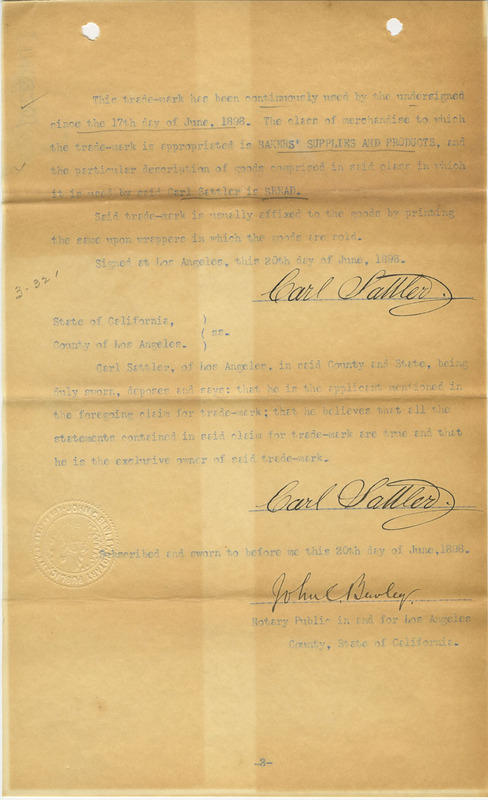 This trade-mark has been continuously used by the undersigned
since the 17th day of June, 1898. The class of merchandise to which
the trade-mark is appropriated is BAKERS' SUPPLIES AND PRODUCTS, and
the particular description of goods comprised in said class in which
it is used by said Carl Sattler is BREAD.
Said trade-mark is usually affixed to the goods by printing
the same upon wrappers in which the goods are sold.
Signed at Los Angeles, this 20th day of June, 1898.
3-32
Carl Sattler.
State of California, )
( ss.
County of Los Angeles. )
Carl Sattler, of Los Angeles, in said County and State, being
duly sworn, deposes and says: that he is the applicant mentioned in
the foregoing claim for trade-mark; that he believes that all the
statements contained in said claim for trade-mark are true and that
he is the exclusive owner of said trade-mark.
Carl Sattler.
Subscribed and sworn to before me this 20th day of June, 1898.
John C.
Notary Public in and for Los Angeles
County, State of California.
-3-